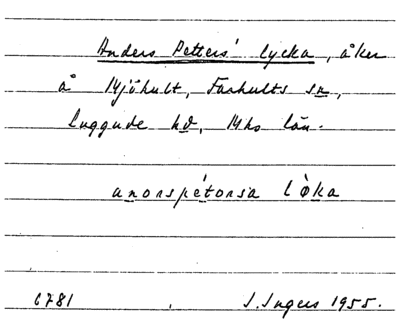 Anders Petters' lycka, åker
å Mjöhult, Farhults sn,
Luggude hd, Mhs län.
anorspetorsa løka
6781
J. Ingers 1955.